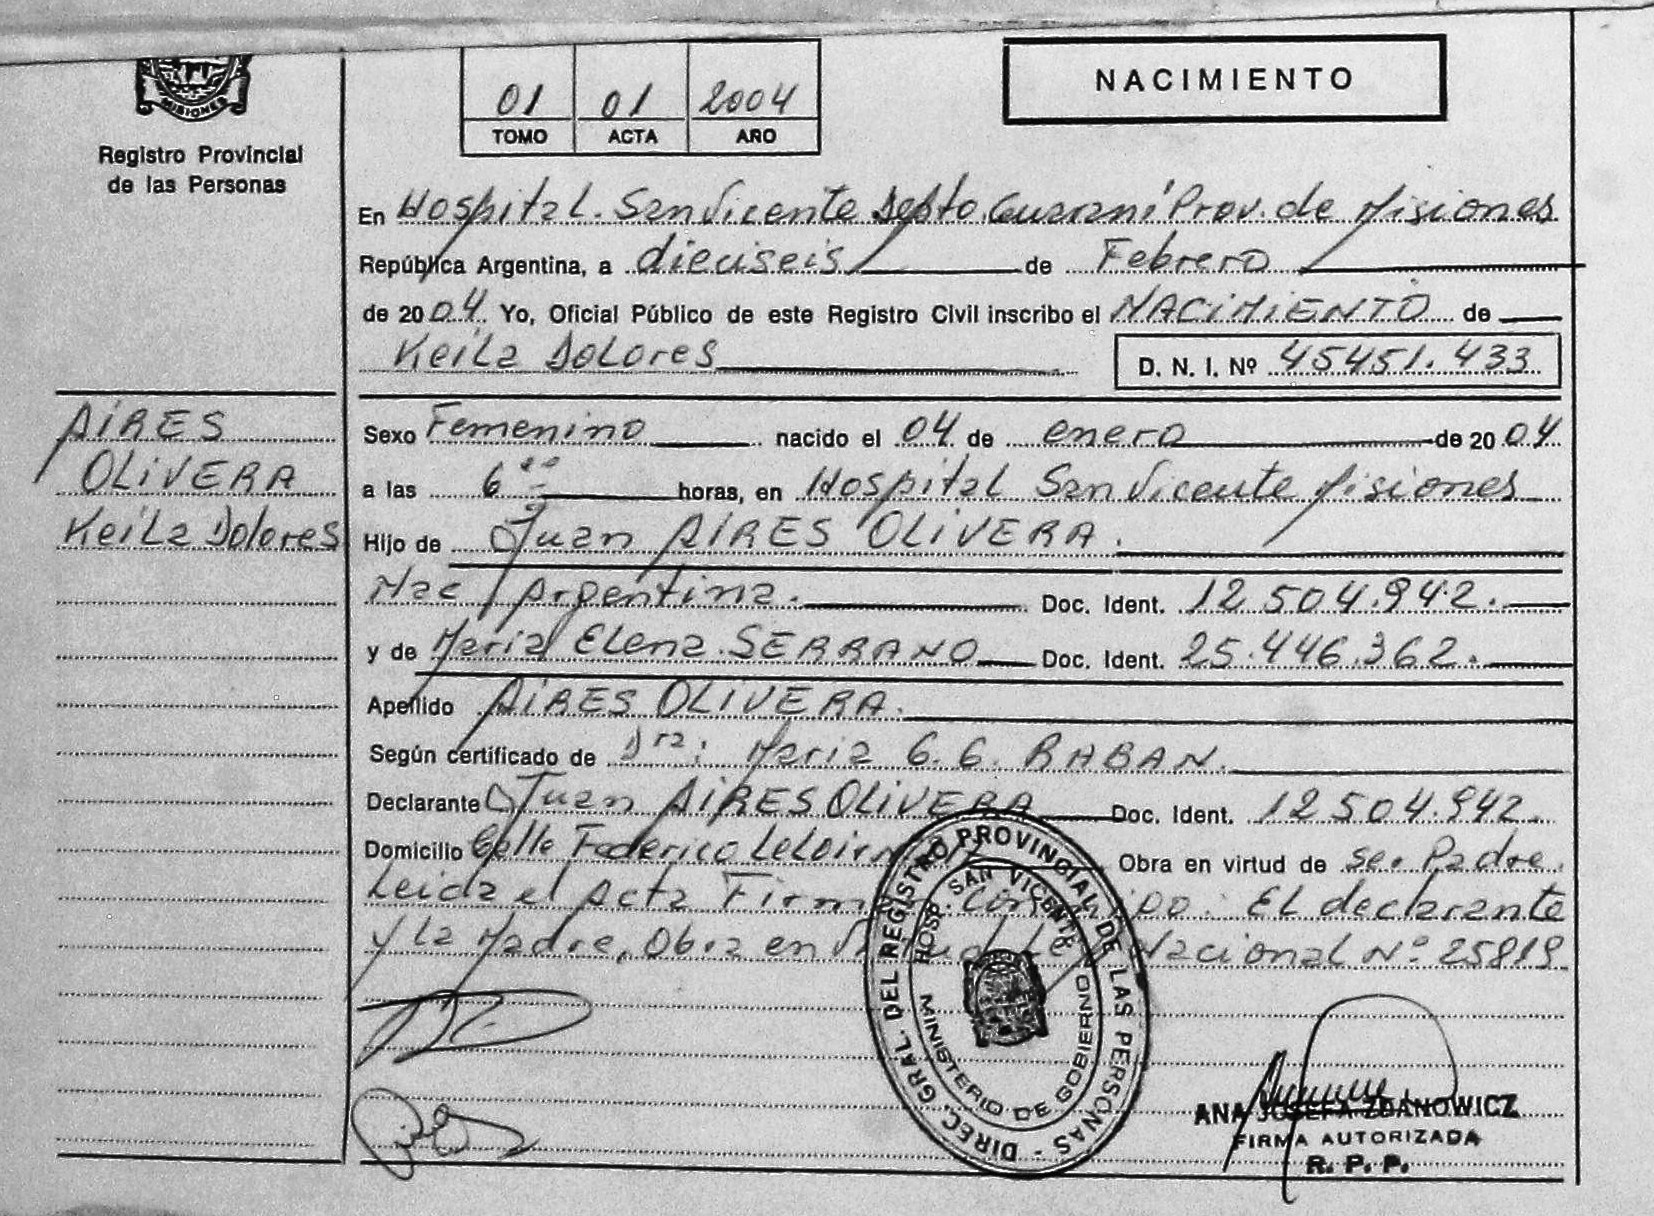 MISIONES
Registro Provincial
de las Personas
01 01 2004
TOMO ACTA AÑO
NACIMIENTO
En Hospital. San Vicente Depto. Guaraní Prov. de Misiones
República Argentina, a dieciseis de Febrero
de 2004. Yo, Oficial Público de este Registro Civil inscribo el NACIMIENTO de
Keila Dolores
D. N. I. Nº 45451.433
AIRES
OLIVERA
Keila Dolores
Sexo Femenino nacido el 04 de enero de 2004
a las 6 horas, en Hospital San Vicente Misiones
Hijo de Juan AIRES OLIVERA.
Nac Argentina. Doc. Ident. 12.504.942.
y de Maria Elena SERRANO Doc. Ident. 25.446.362.
Apellido AIRES OLIVERA.
Según certificado de Dra: Maria G. G. RABAN.
Declarante Juan AIRES OLIVERA Doc. Ident. 12504.942.
Domicilio Calle Federico Leloir Obra en virtud de ser Padre.
Leida el Acta Firman Conmigo: El declarante
y La Madre, Obra en Nacional Nº 25819
DIREC. GRAL. DEL REGISTRO PROVINCIAL DE LAS PERSONAS -
HOSP. SAN VICENTE
MINISTERIO DE GOBIERNO
ANA JOSEFA ZDANOWICZ
FIRMA AUTORIZADA
R. P. P.